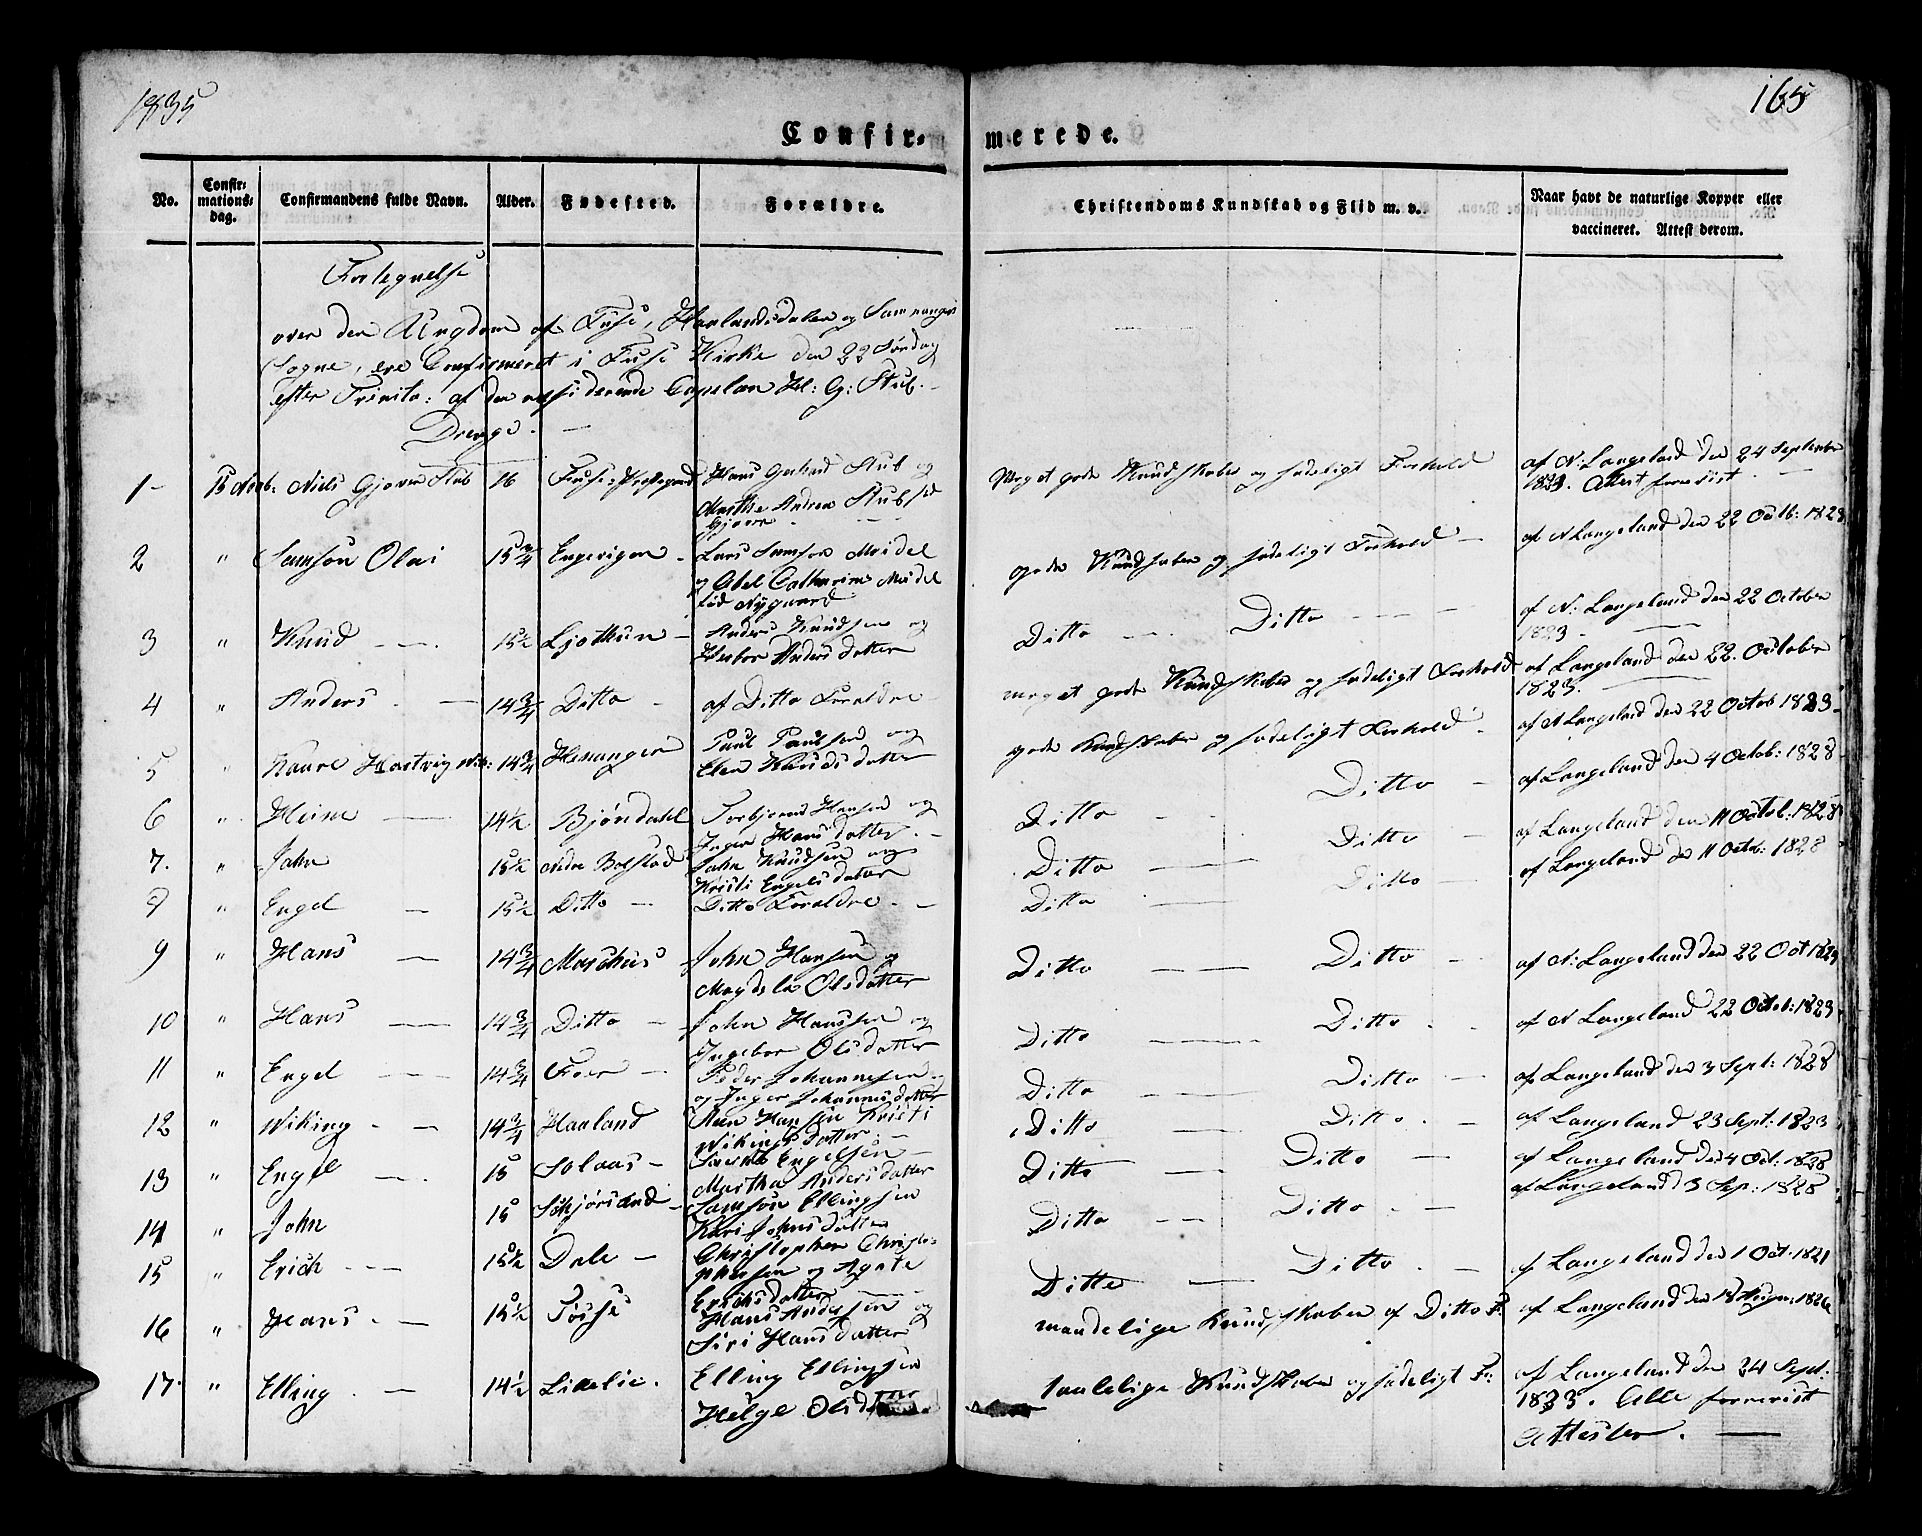 1835
165
Confir-
merede.
No.
Confir-
mations-
dag.
Confirmandens fulde Navn.
Alder.
Fødested.
Forældre.
Christendoms Kundskab og Flid m. v.
Naar havt de naturlige Kopper eller
vaccineret. Attest derom.
Fortegnelse
over den Ungdom af Fuse, Haalandsdalen og Samnanger
Sogne, ere Confirmeret i Fuse Kirke den 22 Søndag
efter Trinita: af den residerende Capelan H: G: Stub.
Drenge. —
1- 15 Novb: Niels Gjøren Stub 16 Fuse-Præstegaard Hans Gerhard Stub og Meget gode Kundskaber og sædeligt Forhold af N: Langeland den 24 September
Marthe Andrea Stub fød 1823. Attest foreviist. —
Gjørn
2 " Samson Olai 15 3/4 Engevigen - Lars Samson Meidel gode Kundskaber og sædeligt Forhold — af N Langeland den 22 Octb: 1823
og Abel Catharine Meidel
fød Nygaard
3 " Knud 15 1/2 Ljothun - Anders Knudsen og Ditto — Ditto — af N: Langeland den 22 October
Herbor Anders datter 1823 —
4 " Anders 14 3/4 Ditto - af Ditto Forældre meget gode Kundskaber og sædeligt Forhold af Langeland den 22. October
1823. —
5 " Kaare Hartvig 14 3/4 Henanger Paul Paulsen og gode Kundskaber og sædeligt Forhold - af N Langeland den 22 Octob 1823
Elen Knuds datter
6 " Heine 14 1/2 Bjørndahl Torbjørns Hansen og Ditto — Ditto — af Langeland den 4 Octob: 1828
Inger Hans datter. -
7. " John 15 1/2 Nedre Bolstad John Knudsen og Ditto — Ditto — af Langeland den 11 Octob: 1828
Kristi Engels datter
8 " Engel — 15 1/2 Ditto — Ditto Forældre. — Ditto — Ditto — af Langeland de 11 Octb: 1828
9 " Hans — 14 3/4 John Hansen og Ditto — Ditto — af N: Langeland den 22 Oct 1823
Magdela Olsdatter
10 " Hans — 14 3/4 Ditto — John Hanssen og Ditto — Ditto - af N Langeland 22 Octob: 1823
Ingebor Olsdatter
11 " Engel — 14 3/4 — Peder Johannesen Ditto — Ditto — af Langeland den 3 Sept: 1828
og Inger Johannesdatter
12 " Wiking - — 14 3/4 Haaland Hansen Kristi Ditto — Ditto - af Langeland 23 Sept: 1823
Wikings datter. —
13 " Engel — 15 Solaas — Engelsen — Ditto — Ditto — af Langeland den 4 Oct: 1828
Martha Anders datter
14 " John 15 Schjørsand — Samson Ellingsen Ditto — Ditto - af Langeland 3 Sep: 1828
Kari Johns datter
15 " Erich — 15 1/2 Dale — Christopher Christo- Ditto — Ditto - af Langeland den 1 Oct. 1821
phersen og Agate
Erichs datter —
16 " Hans. — 15 1/2 Tøsse Hans Andersen og maadelige Kundskaber af Ditto F: af Langeland den 18 1826
Siri Hans datter
17. " Elling. — 14 1/2 Lizelie. Elling Ellingsen taalelige Kundskaber og sædeligt F: af Langeland den 24 Sept:
Helge Olsdatter 1823. Alle foreviist
Attester. —